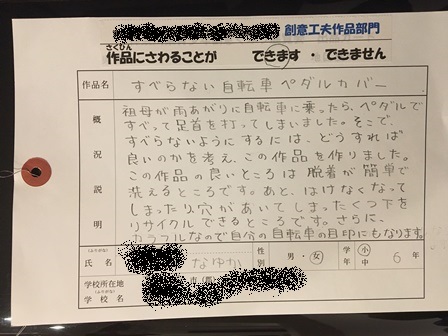 創意工夫作品部門
さくひん
作品にさわることが できます ・ できません
作品名 すべらない自転車ペダルカバー
概況説明
祖母が雨あがりに自転車に乗ったら、ペダルで
すべって足首を打ってしまいました。そこで、
すべらないようにするには、どうすれば
良いのかを考え、この作品を作りました。
この作品の良いところは脱着が簡単で
洗えるところです。あと、はけなくなって
しまったり、穴があいてしまったくつ下を
リサイクルできるところです。さらに、
カラフルなので自分の自転車の目印にもなります。
(ふりがな)
氏名 なゆか 性別 男・女 学年 小 中 6年
学校所在地
(ふりがな)
学校名